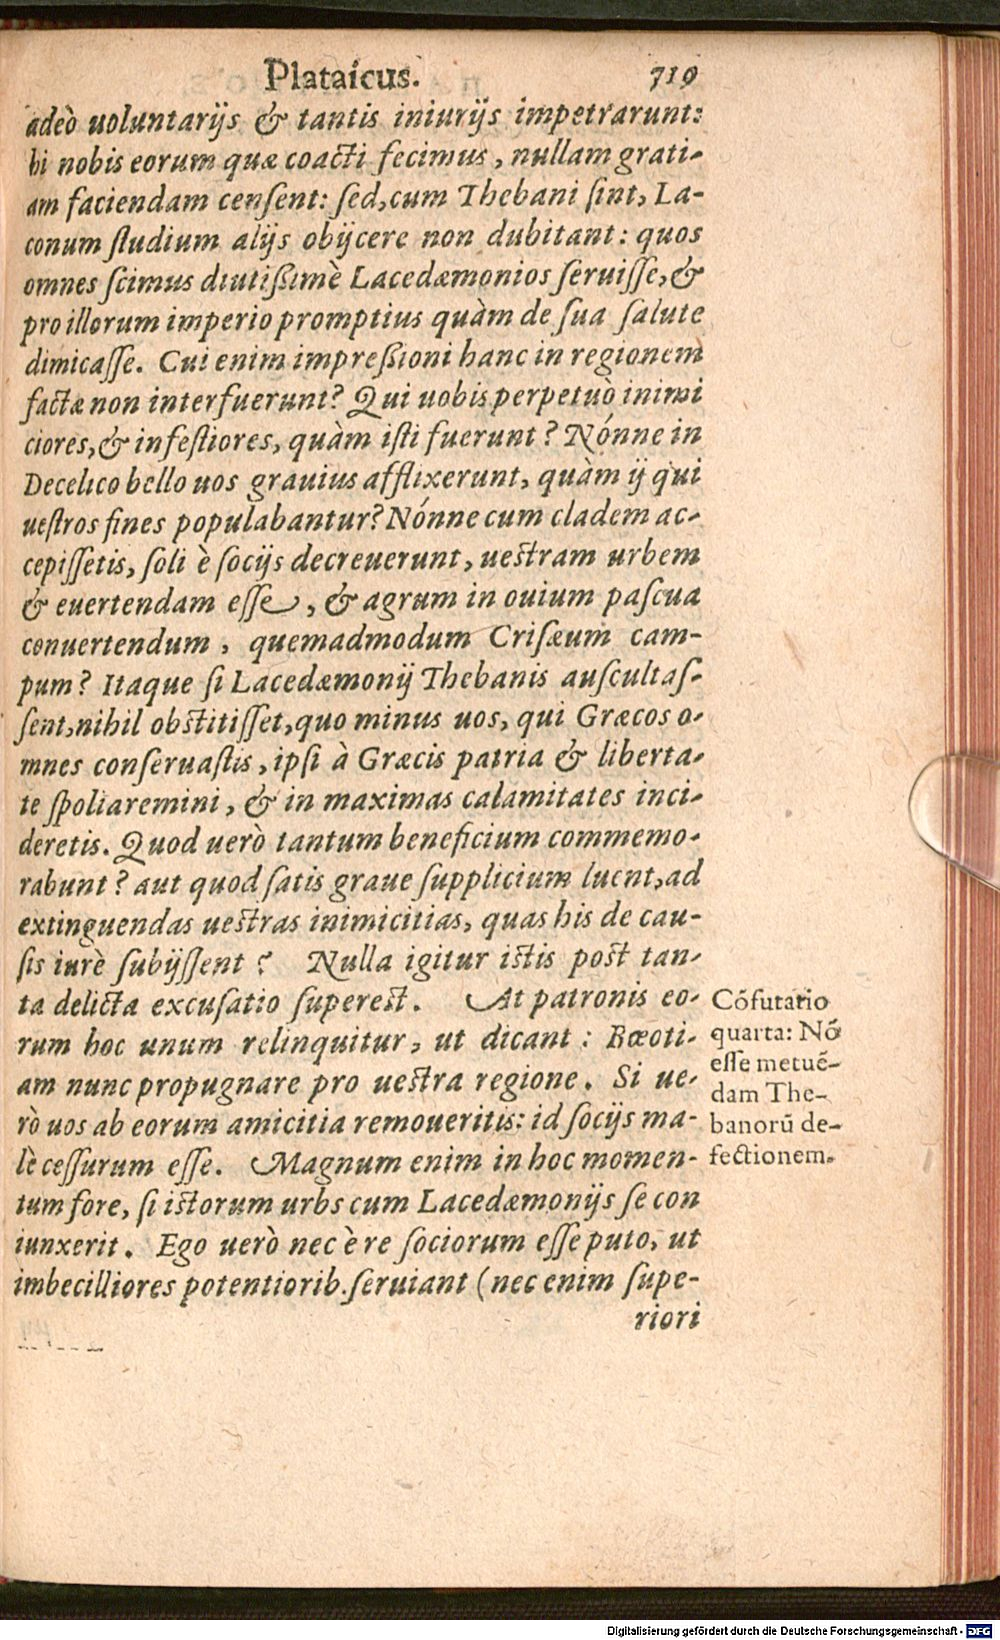 Plataicus. 719
adeò uoluntarijs & tantis iniurijs impetrarunt:
hi nobis eorum quæ coacti fecimus, nullam grati-
am faciendam censent: sed, cum Thebani sint, La-
conum studium alijs obijcere non dubitant: quos
omnes scimus diutißimè Lacedæmonios seruisse, &
pro illorum imperio promptius quàm de sua salute
dimicasse. Cui enim impreßioni hanc in regionem
factæ non interfuerunt? Qui uobis perpetuò inimi
ciores, & infestiores, quàm isti fuerunt? Nónne in
Decelico bello uos grauius afflixerunt, quàm ij qui
uestros fines populabantur? Nónne cum cladem ac-
cepissetis, soli è socijs decreuerunt, uestram urbem
& euertendam esse, & agrum in ouium pascua
conuertendum, quemadmodum Crisæum cam-
pum? Itaque si Lacedæmonij Thebanis auscultas-
sent, nihil obstitisset, quo minus uos, qui Græcos o-
mnes conseruastis, ipsi à Græcis patria & liberta-
te spoliaremini, & in maximas calamitates inci-
deretis. Quod uerò tantum beneficium commemo-
rabunt? aut quod satis graue supplicium luent, ad
extinguendas uestras inimicitias, quas his de cau-
sis iurè subijssent? Nulla igitur istis post tan-
ta delicta excusatio superest. At patronis eo-
rum hoc unum relinquitur, ut dicant: Bœoti-
am nunc propugnare pro uestra regione. Si ue-
rò uos ab eorum amicitia remoueritis: id socijs ma-
lè cessurum esse. Magnum enim in hoc momen-
tum fore, si istorum urbs cum Lacedæmonijs se con
iunxerit. Ego uerò nec è re sociorum esse puto, ut
imbecilliores potentiorib. seruiant (nec enim supe-
riori
Cōfutatio
quarta: Nō
esse metuē-
dam The-
banorū de-
fectionem.
Digitalisierung gefördert durch die Deutsche Forschungsgemeinschaft - DFG